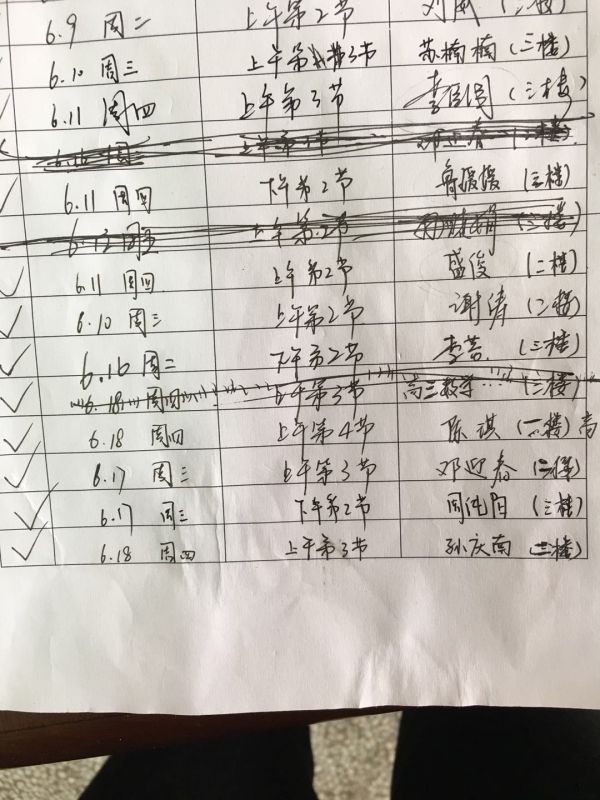 6.9 周二 上午第2节 刘威 (二楼)
6.10 周三 上午第3节 苏楠楠 (三楼)
6.11 周四 上午第3节 李 (三楼)
上午第1节 邓迎春 (三楼)
6.11 周四 下午第2节 (三楼)
6.12 周五 上午第2节 (三楼)
6.11 周四 上午第2节 盛俊 (二楼)
6.10 周三 上午第2节 谢清 (二楼)
6.16 周二 下午第2节 (三楼)
6.18 周四 上午第3节 高三数学 (三楼)
6.18 周四 上午第4节 陈祺 (二楼) 高
6.17 周三 上午第3节 邓迎春 (三楼)
6.17 周三 下午第2节 周纯阳 (三楼)
6.18 周四 上午第3节 孙庆南 (三楼)